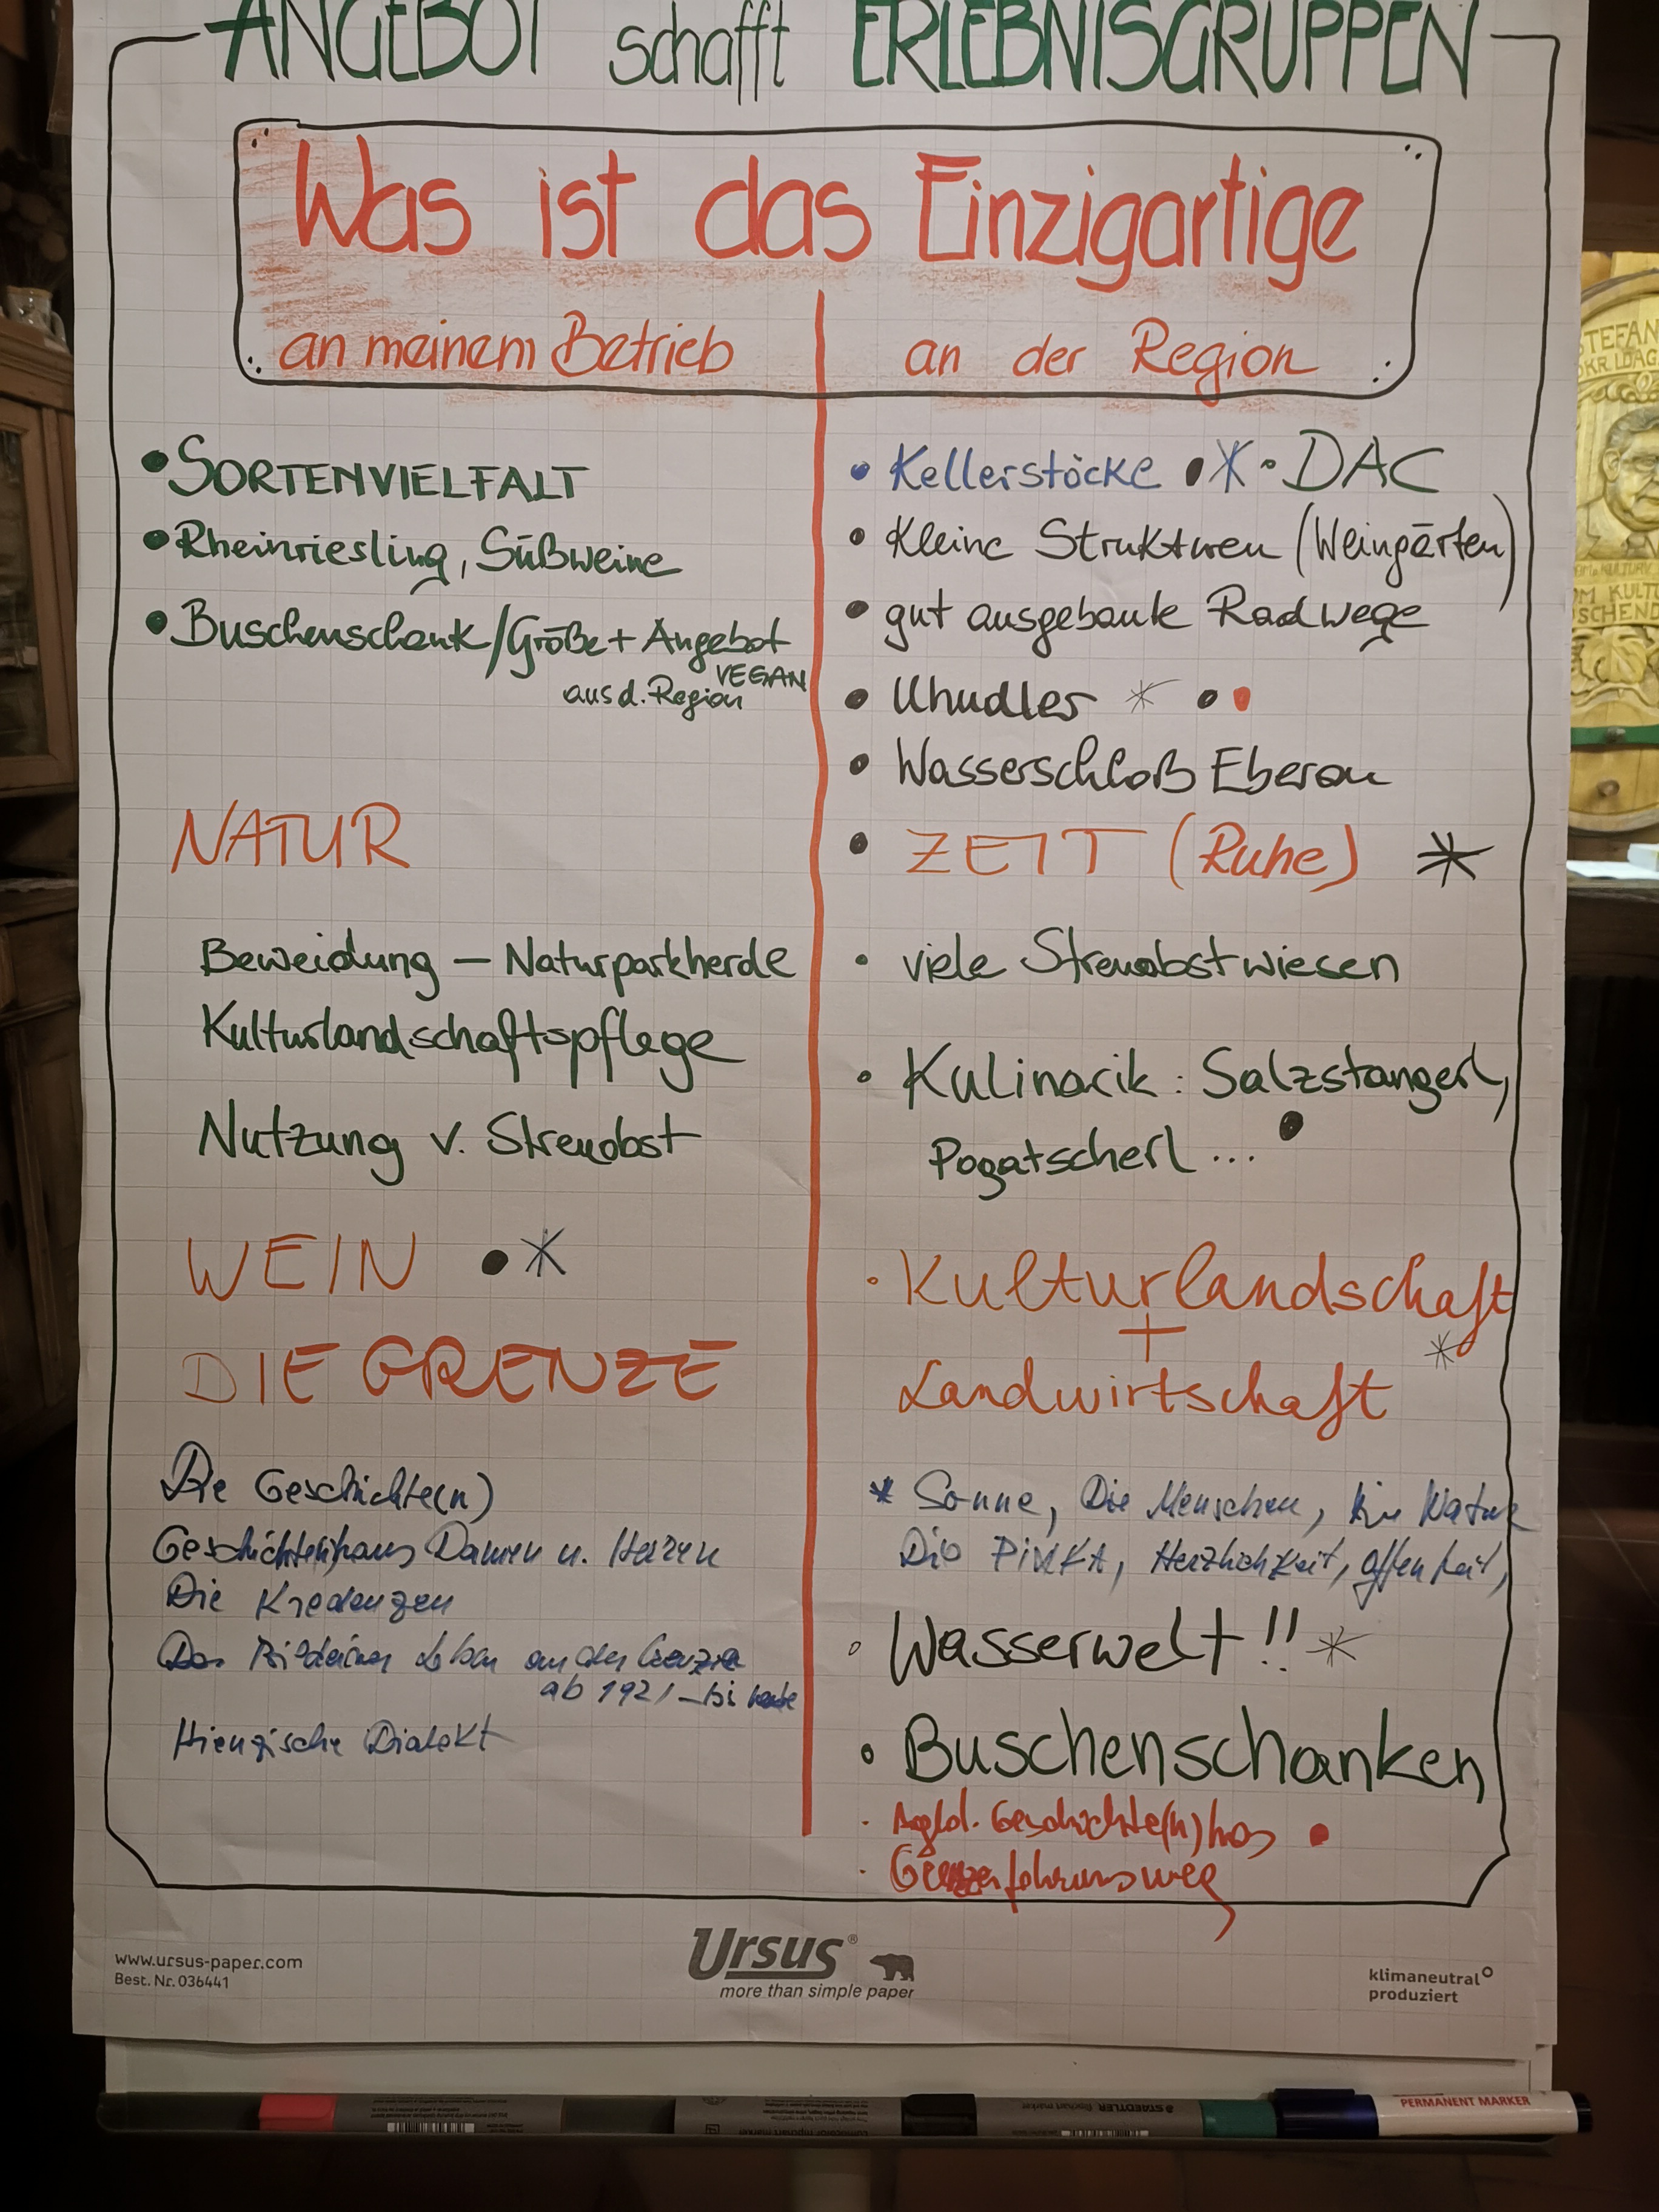 ANGEBOT schafft ERLEBNISGRUPPEN
Was ist das Einzigartige
an meinem Betrieb
an der Region
• SORTENVIELFALT
• Rheinriesling, Süßweine
• Buschenschank/Größe + Angebot
VEGAN
aus d. Region
NATUR
Beweidung — Naturparkherde
Kulturlandschaftspflege
Nutzung v. Streuobst
WEIN • *
DIE GRENZE
Die Geschichte(n)
Geschichte(n)haus Damen u. Herren
Die Kredenzen
Das Bildeiner Leben an der Grenze
ab 1921 – bis heute
Hienzische Dialekt
• Kellerstöcke • * • DAC
• Kleine Strukturen (Weingärten)
• gut ausgebaute Radwege
• Uhudler * • •
• Wasserschloß Eberau
• ZEIT (Ruhe) *
• viele Streuobstwiesen
• Kulinarik : Salzstangerl,
Pogatscherl ...
• Kulturlandschaft
+ *
Landwirtschaft
* Sonne, Die Menschen, Die Natur
Die PINKA, Herzlichkeit, Offenheit,
• Wasserwelt !! *
• Buschenschanken
• Bgld. Geschichte(n)haus •
• Grenzerfahrungsweg
www.ursus-paper.com
Best. Nr. 036441
Ursus®
more than simple paper
klimaneutral
produziert
STAEDTLER
PERMANENT MARKER
STEFAN
KULTUR